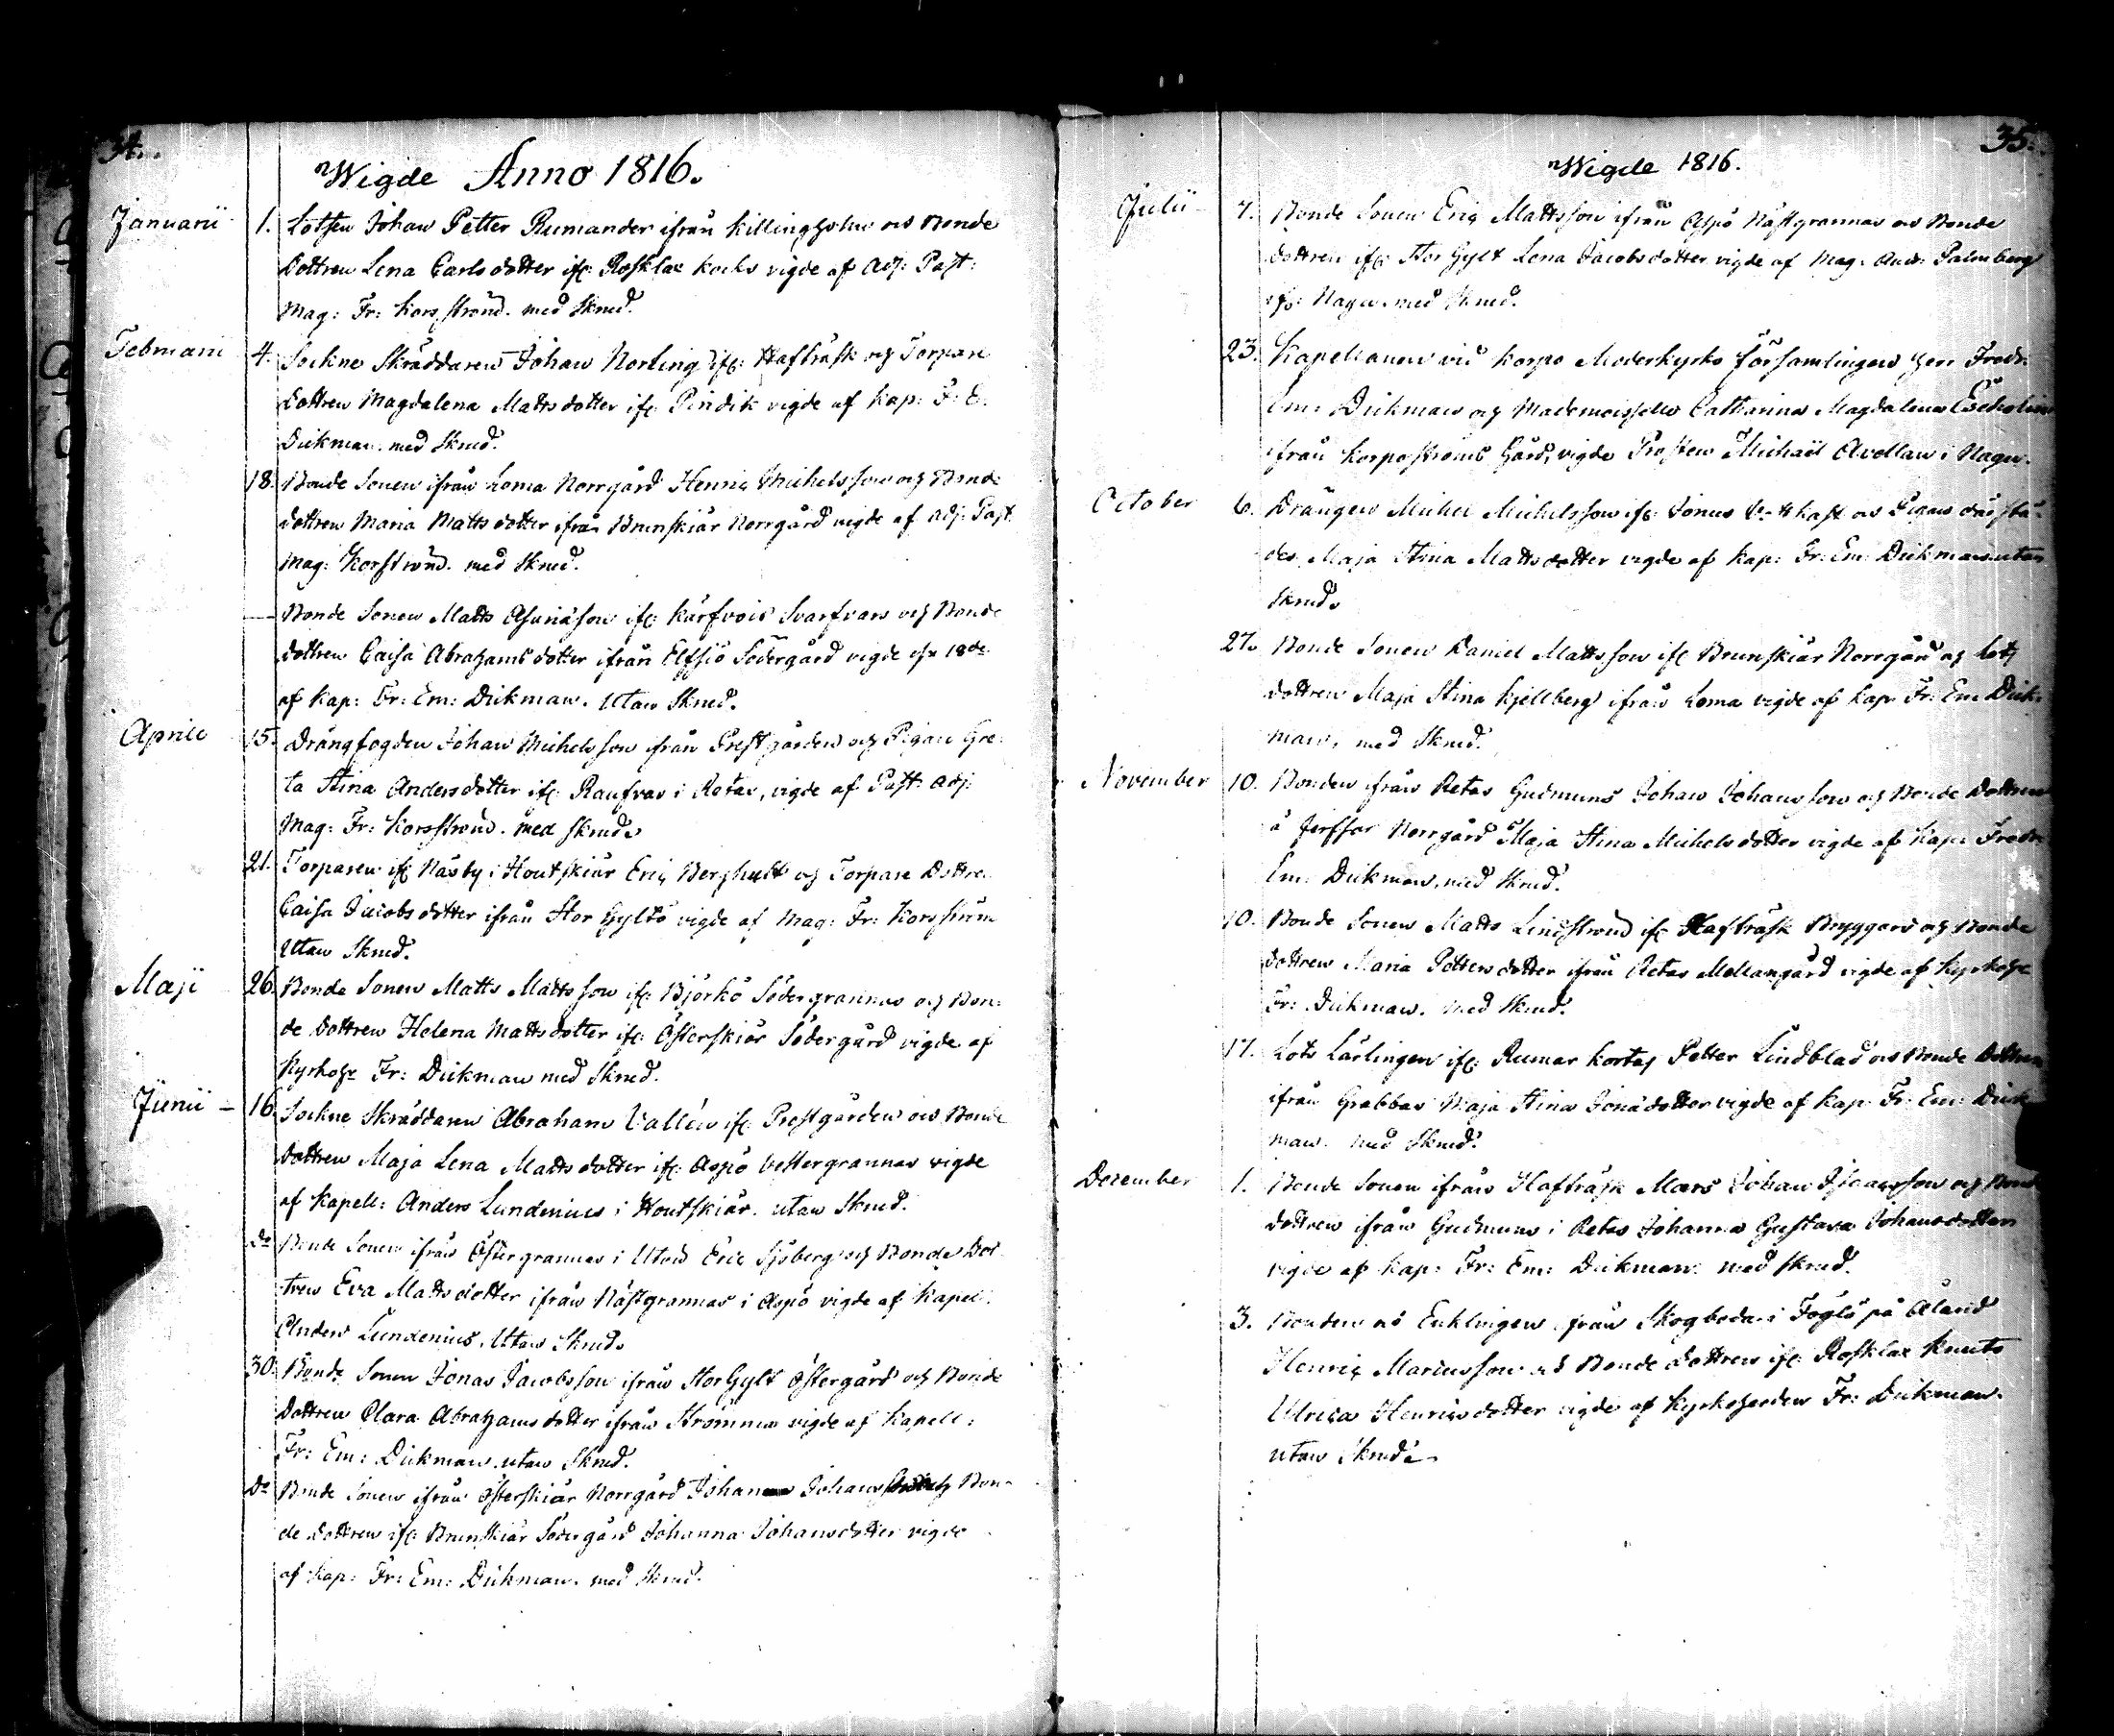 34.
Wigde Anno 1816.
Januarii 1. Lotsen Johan Petter Rumander ifrån Killingholm och Bonde
Dottren Lena Carlsdotter ifr: Rosklax Kocks vigde af Adj: Past:
Mag: Fr: Korsström. med Skrud.
Februarii 4. Sockne Skräddaren Johan Norling ifr: Hafträsk och Torpare
Dottren Magdalena Mattsdotter ifr: vigde af Kap: F: E:
Dickman. med Skrud.
18. Bonde Sonen ifrån Loma Norrgård Henric Michelsson och Bonde
dottren Maria Mattsdotter ifrån Brunskiär Norrgård vigde af Adj: Past:
Mag: Korsström. med Skrud.
— Bonde Sonen Matts ifr: Svarfvars och Bonde
dottren Caisa Abrahamsdotter ifrån Elfsiö Södergård vigde 18de
af Kap: Fr: Em: Dickman. Utan Skrud.
Aprill 15. Drängfogden Johan Michelsson ifrån Prestgården och Pigan Gre-
ta Stina Andersdotter ifr: i Retas, vigde af Past: Adj:
Mag: Fr: Korsström. med Skrud.
21. Torparen ifr: Näsby i Houtskiär Eric Berghult och Torpare Dottren
Caisa Jacobsdotter ifrån Stor Gyltö vigde af Mag: Fr: Korsström
Utan Skrud.
Maji 26. Bonde Sonen Matts Mattsson ifr: Björkö Södergrannas och Bon-
de Dottren Helena Mattsdotter ifr: Österskiär Södergård vigde af
Kyrkohr Fr: Dickman med Skrud.
Junii – 16. Sockne Skräddaren Abraham Vallén ifr: Prestgården och Bonde
dottren Maja Lena Mattsdotter ifr: Aspö Vestergrannas vigde
af Kapell: Anders Lundenius i Houtskiär. utan Skrud.
Do Bonde Sonen ifrån Östergrannas i Utö Eric Sjöberg och Bonde Dot-
tren Eva Mattsdotter ifrån Nästgrannas i Aspö vigde af Kapell:
Anders Lundenius. Utan Skrud.
30. Bonde Sonen Jonas Jacobsson ifrån Stor Gylt Östergård och Bonde
Dottren Clara Abrahamsdotter ifrån Strömma vigde af Kapell:
Fr: Em: Dickman. utan Skrud.
Do Bonde Sonen ifrån Österskiär Norrgård Johan Johansson och Bon-
de dottren ifr: Brunskiär Södergård Johanna Johansdotter vigde
af Kap: Fr: Em: Dickman. med Skrud.
35.
Wigde 1816.
Julii – 7. Bonde Sonen Eric Mattsson ifrån Aspö Nästgrannas och Bonde
dottren ifr: Stor Gylt Lena Jacobsdotter vigde af Mag: And: Palmberg
ifr: Nagu. med Skrud.
23. Kapellanen vid Korpo Moderkyrko församlingen Herr Fredr:
Em: Dickman och Mademoiselle Catharina Magdalena
ifrån Korpoströms Gård, vigde Prosten Michaël Avellan i Nagu.
October 6. Drängen Michel Michelsson ifr: och Pigan därstä-
des Maja Stina Mattsdotter vigde af Kap: Fr: Em: Dickman utan
Skrud.
27. Bonde Sonen Daniel Mattsson ifr: Brunskiär Norrgård och Lots
dottren Maja Stina Kjellberg ifrån Loma vigde af Kap: Fr: Em: Dick-
man, med Skrud.
November 10. Bonden ifrån Retas Gudmuns Johan Johansson och Bonde Dottren
å Jerssor Norrgård Maja Stina Michelsdotter vigde af Kap: Fredr:
Em: Dickman, med Skrud.
10. Bonde Sonen Matts Lindström ifr: Hafträsk Bryggars och Bonde
dottren Maria Pettersdotter ifrån Retas Mellangård vigde af Kyrkohr
Fr: Dickman. med Skrud.
17. Lots Lärlingen ifr: Rumar Petter Lindblad och Bonde Dottren
ifrån Grabbas Maja Stina Jonasdotter vigde af Kap: Fr: Em: Dick-
man. med Skrud.
December 1. Bonde Sonen ifrån Hafträsk Mars Johan Isaacsson och Bonde
dottren ifrån Gudmuns i Retas Johanna Gustava Johansdotter
vigde af Kap: Fr: Em: Dickman. med Skrud.
3. Bonden och Enklingen ifrån Skogboda i Föglö på Åland
Henric Marcusson och Bonde dottren ifr: Rosklax Knuts
Ulrica Henricsdotter vigde af Kyrkoherden Fr: Dickman.
utan Skrud.